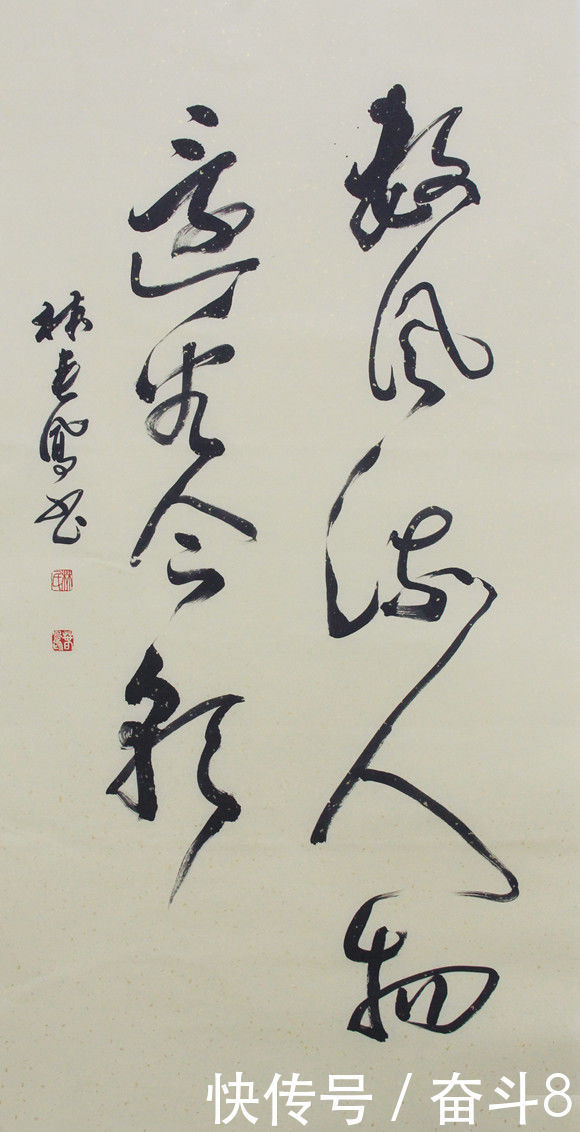 数风流人物
還看今朝
林長 书
快传号 / 奋斗8